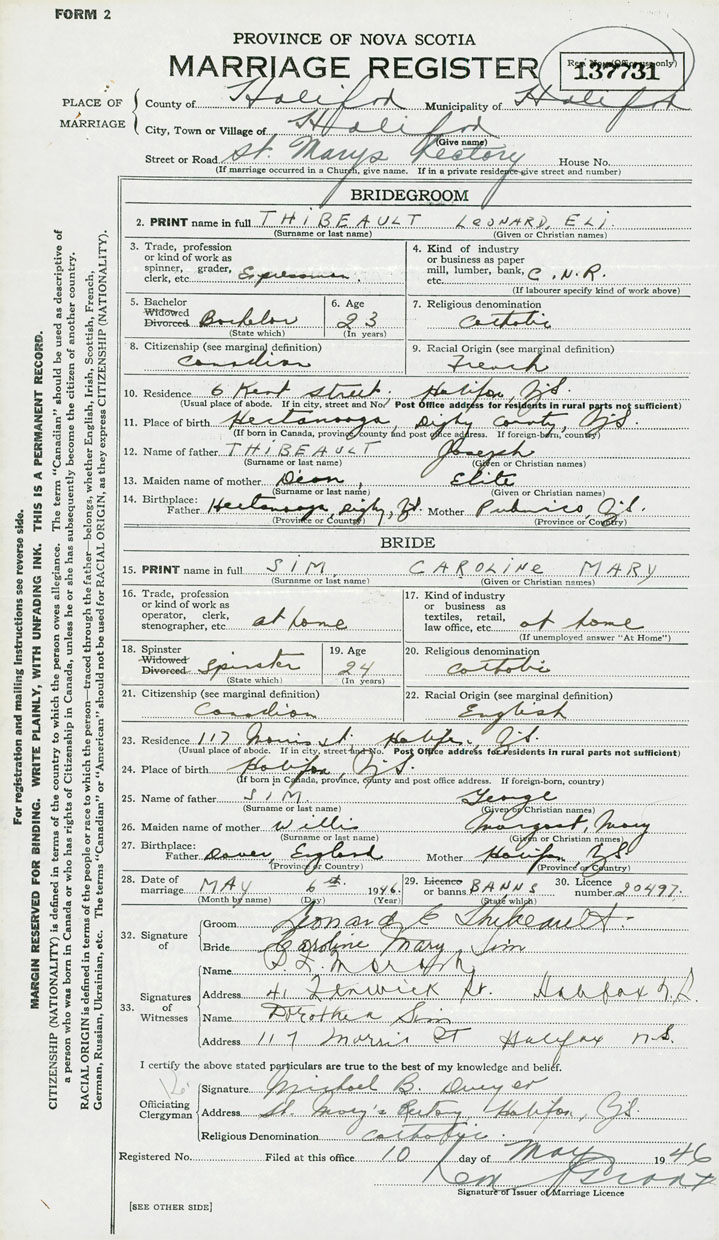 FORM 2
PROVINCE OF NOVA SCOTIA
MARRIAGE REGISTER
137731
PLACE OF MARRIAGE
County of Halifax Municipality of Halifax
City, Town or Village of Halifax
(Give name)
Street or Road St. Marys Rectory House No.
(If marriage occurred in a Church, give name. If in a private residence give street and number)
BRIDEGROOM
2. PRINT name in full THIBEAULT LEONARD, ELI.
(Surname or last name) (Given or Christian names)
3. Trade, profession or kind of work as spinner, grader, clerk, etc. Expressman.
4. Kind of industry or business as paper mill, lumber, bank, etc. C.N.R.
(If labourer specify kind of work above)
5. Bachelor Widowed Divorced Bachelor
(State which)
6. Age 23
(In years)
7. Religious denomination Catholic
8. Citizenship (see marginal definition) Canadian
9. Racial Origin (see marginal definition) French
10. Residence 6 Kent Street, Halifax, N.S.
(Usual place of abode. If in city, street and No. Post Office address for residents in rural parts not sufficient)
11. Place of birth Hectanooga, Digby County, N.S.
(If born in Canada, province, county and post office address. If foreign-born, country)
12. Name of father THIBEAULT Joseph
(Surname or last name) (Given or Christian names)
13. Maiden name of mother Deon, Elite
(Surname or last name) (Given or Christian names)
14. Birthplace: Father Hectanooga, Digby, N.S. Mother Pubnico, N.S.
(Province or Country) (Province or Country)
BRIDE
15. PRINT name in full SIM, CAROLINE MARY
(Surname or last name) (Given or Christian names)
16. Trade, profession or kind of work as operator, clerk, stenographer, etc. at home
17. Kind of industry or business as textiles, retail, law office, etc. at home
(If unemployed answer "At Home")
18. Spinster Widowed Divorced Spinster
(State which)
19. Age 24
(In years)
20. Religious denomination Catholic
21. Citizenship (see marginal definition) Canadian
22. Racial Origin (see marginal definition) English
23. Residence 117 Morris St. Halifax, N.S.
(Usual place of abode. If in city, street and No. Post Office address for residents in rural parts not sufficient)
24. Place of birth Halifax, N.S.
(If born in Canada, province, county and post office address. If foreign-born, country)
25. Name of father SIM. George
(Surname or last name) (Given or Christian names)
26. Maiden name of mother Willis Margaret, Mary
(Surname or last name) (Given or Christian names)
27. Birthplace: Father Dover, England Mother Halifax, N.S.
(Province or Country) (Province or Country)
28. Date of marriage MAY 6th 1946.
(Month by name) (Day) (Year)
29. Licence or banns BANNS
(State which)
30. Licence number 20497.
32. Signature of
Groom Leonard E Thibeault.
Bride Caroline Mary Sim
33. Signatures of Witnesses
Name
Address 41 Fenwick St. Halifax N.S.
Name Dorothea Sim
Address 117 Morris St Halifax N.S.
I certify the above stated particulars are true to the best of my knowledge and belief.
Officiating Clergyman
Signature Michael B. Dwyer
Address St. Mary's Rectory, Halifax, N.S.
Religious Denomination Catholic.
Registered No. Filed at this office 10 day of May 1946
Signature of Issuer of Marriage Licence
[SEE OTHER SIDE]
For registration and mailing instructions see reverse side.
MARGIN RESERVED FOR BINDING. WRITE PLAINLY, WITH UNFADING INK. THIS IS A PERMANENT RECORD.
CITIZENSHIP (NATIONALITY) is defined in terms of the country to which the person owes allegiance. The term "Canadian" should be used as descriptive of
a person who was born in Canada or who has rights of Citizenship in Canada, unless he or she has subsequently become the citizen of another country.
RACIAL ORIGIN is defined in terms of the people or race to which the person—traced through the father—belongs, whether English, Irish, Scottish, French,
German, Russian, Ukrainian, etc. The terms "Canadian" or "American" should not be used for RACIAL ORIGIN, as they express CITIZENSHIP (NATIONALITY).